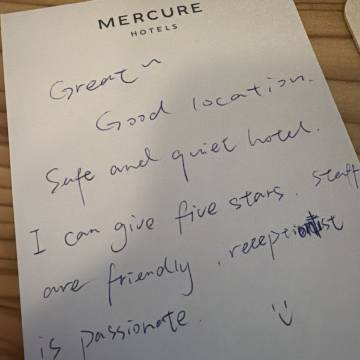 MERCURE
HOTELS
Great ~
Good location.
Safe and quiet hotel.
I can give five stars. staff
are friendly. receptionist
is passionate.